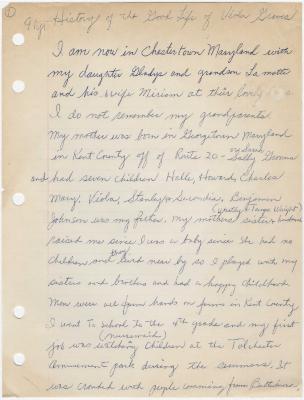 1
9 pgs. History of the Good Life of Viola Graves
I am now in Chestertown Maryland with
my daughter Gladys and grandson Lamotte
and his wife Miriam at their lovely
I do not remember my grandparents
My mother was born in Georgetown Maryland
in Kent County off of Route 20 - Sally
and had seven children. Halle, Howard, Charles
Mary, Viola, Stanley & Benjamin
Johnson was my father. my mothers sister & husband
raised me since I was a baby since she had no
children and they lived near by so I played with my
sisters and brothers and had a happy childhood.
Men were all farm hands on farms in Kent County
I went to school to the 4th grade and my first
(nursemaid)
job was watching children at the Tolchester
Amusement park during the summers. It
was crowded with people comming from Baltimore